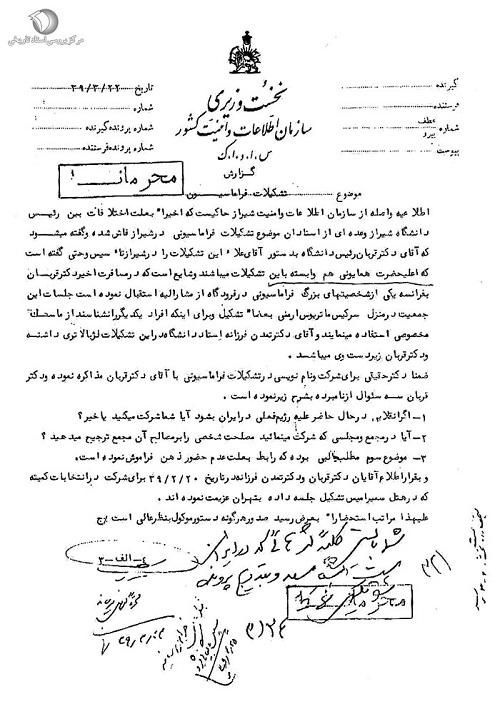 مرکز بررسی اسناد تاریخی
نخست وزیری
سازمان اطلاعات و امنیت کشور
س.ا.و.ا.ک
گزارش
گیرنده
فرستنده
شماره عطف پیرو
پیوست
تاریخ ۳۹/۳/۲۲
شماره
شماره پرونده گیرنده
شماره پرونده فرستنده
محرمانه
موضوع تشکیلات فراماسیون
اطلاعیه واصله از سازمان اطلاعات وامنیت شیراز حاکیست که اخیرا" بعلت اختلافات بین رئیس
دانشگاه شیراز وعده ای از استادان موضوع تشکیلات فراماسیونی درشیراز فاش شده وگفته میشود
که آقای دکترقربان رئیس دانشگاه بدستور آقای علاء این تشکیلات را درشیراز تاسیس وحتی گفته است
که اعلیحضرت همایونی هم وابسته باین تشکیلات میباشند وشایع است که درمسافرت اخیر دکترقربان
بفرانسه یکی از شخصیتهای بزرگ فراماسیونی درفرودگاه از مشارالیه استقبال نموده است جلسات این
جمعیت درمنزل سرکیس مارتیروس ارمنی بعضا" تشکیل وبرای اینکه افراد یکدیگر رانشناسند از ماسک
مخصوصی استفاده مینمایند وآقای دکترتمدن فرزانه استاد دانشگاه دراین تشکیلات لژ بالاتری داشته
ودکترقربان زیردست وی میباشد.
ضمنا دکترحقیقی برای شرکت ونام نویسی درتشکیلات فراماسیونی با آقای دکترقربان مذاکره نموده ودکتر
قربان سه سئوال ازنامبرده بشرح زیرنموده است.
۱- اگرانقلابی درحال حاضر علیه رژیم فعلی درایران بشود آیا شما شرکت میکنید یا خیر؟
۲- آیا در مجمع ومجلسی که شرکت مینمائید مصلحت شخصی را برمصالح آن مجمع ترجیح میدهید؟
۳- موضوع سوم مطلب جالبی بوده که رابط بعلت عدم حضور ذهن فراموش نموده است.
وبقرار اطلاع آقایان دکترقربان ودکترتمدن فرزانه درتاریخ ۳۹/۲/۲۰ برای شرکت درانتخابات کمیته
که درهتل سمیرامیس تشکیل جلسه داده بتهران عزیمت نموده اند.
علیهذا مراتب استحضارا" بعرض رسید صدور هرگونه دستور موکول بنظر عالی است برج
۲-الف-۳